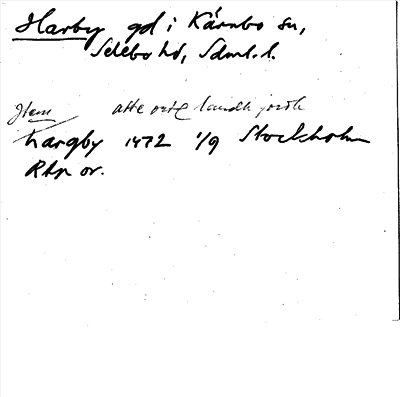 Harby gd i Kärnbo sn,
Selebo hd, Sdml. l.
Item atte ortug landh jordh
hargby 1472 1/9 Stockholm
RAp or.